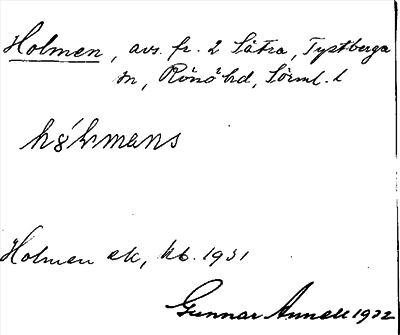 Holmen, avs. fr. 2 Sätra, Tystberga
sn, Rönö hd, Sörml. l
Holmen ek, kb. 1931
Gunnar Annell 1932